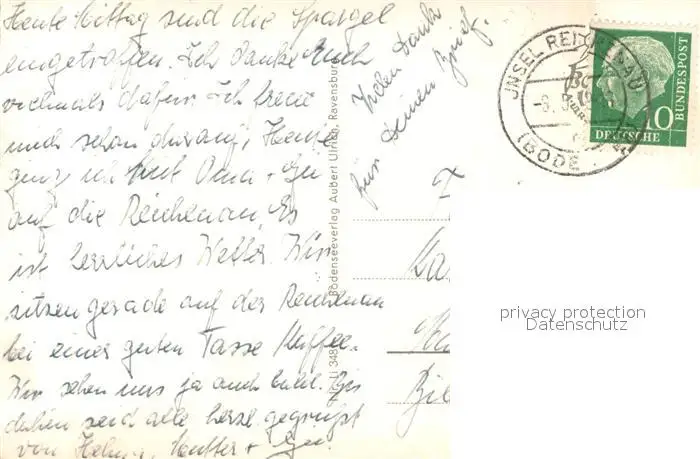 Heute Mittag sind die Spargel
eingetroffen. Ich danke Euch
vielmals dafür. Ich freue
mich schon darauf, Heute
ging ich mit Oma +
auf die Reichenau, Es
ist herrliches Wetter. Wir
sitzen gerade auf der Reichenau
bei einer guten Tasse Kaffee.
Wir sehen uns ja auch bald. Bis
dahin seid alle herzl. gegrüßt
von Helmy, Mutter +
Vielen Dank
für Deinen Brief.
Bodenseeverlag Aubert Ulrich, Ravensburg
INSEL REICHENAU
(BODENSEE)
DEUTSCHE
BUNDESPOST
10
privacy protection
Datenschutz